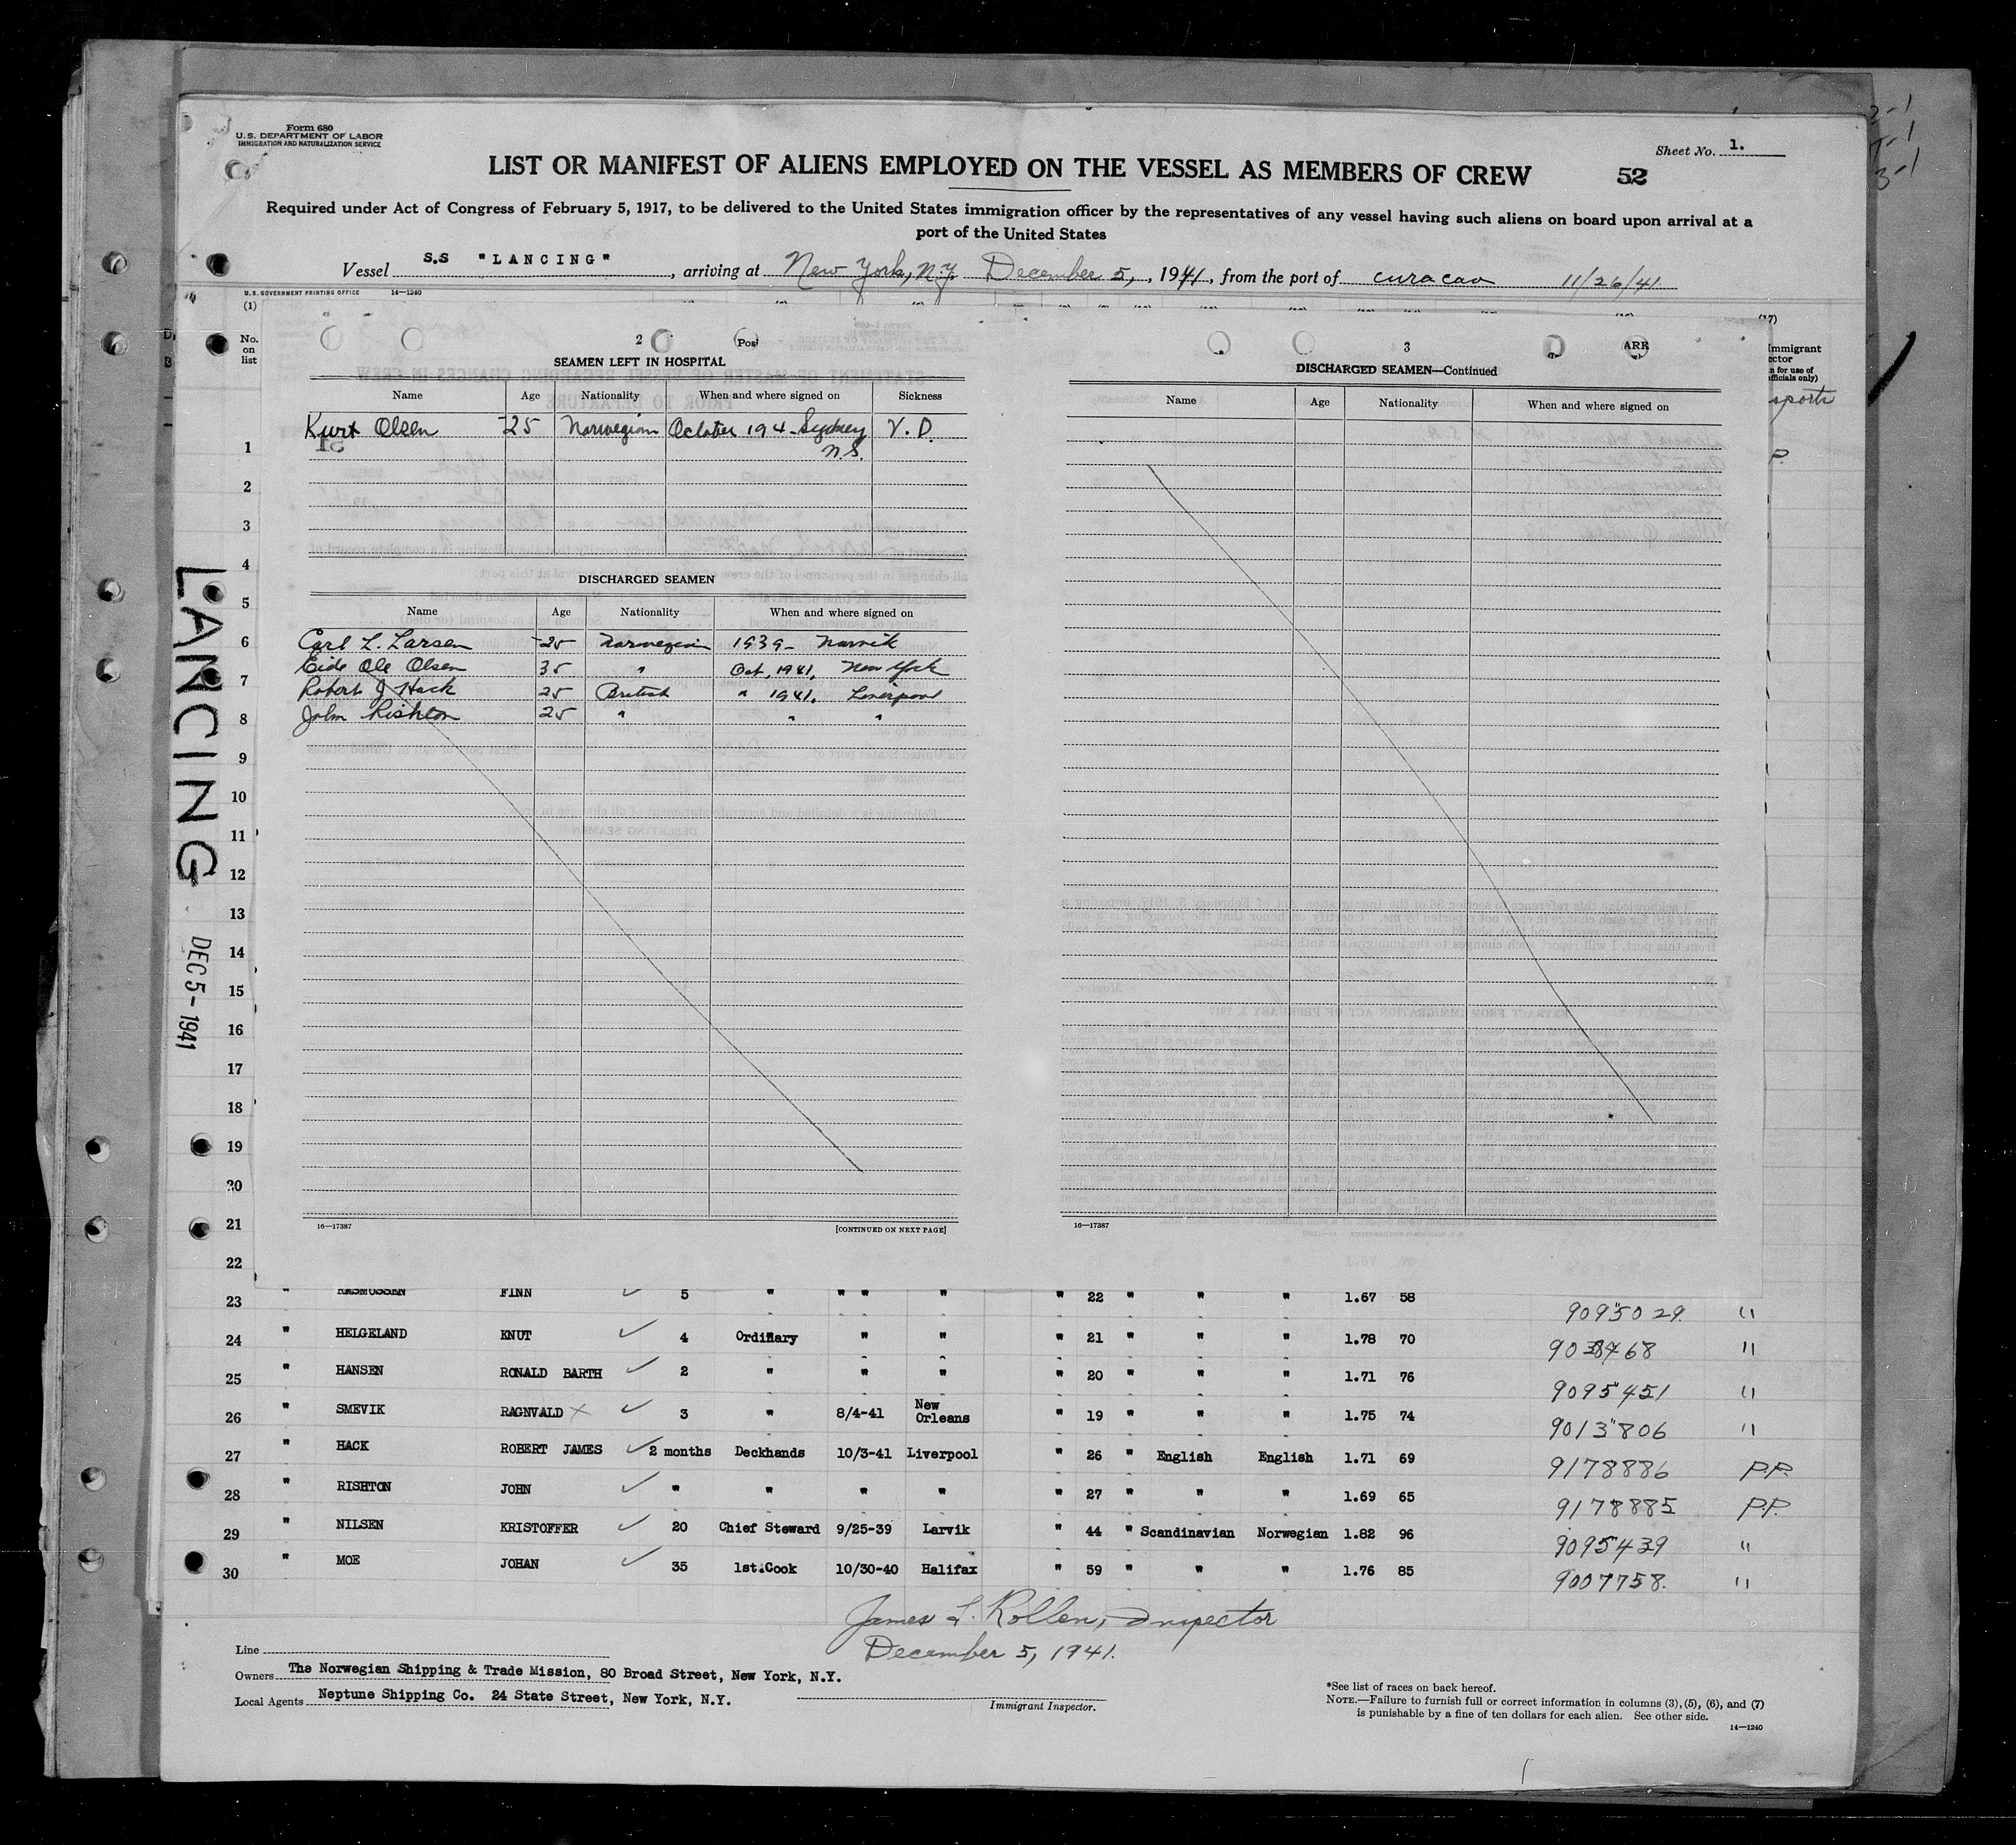 Form 680
U.S. DEPARTMENT OF LABOR
IMMIGRATION AND NATURALIZATION SERVICE
Sheet No. 1.
LIST OR MANIFEST OF ALIENS EMPLOYED ON THE VESSEL AS MEMBERS OF CREW 52
Required under Act of Congress of February 5, 1917, to be delivered to the United States immigration officer by the representatives of any vessel having such aliens on board upon arrival at a
port of the United States
Vessel S.S "LANCING", arriving at New York, N.Y. December 5, 1941, from the port of curacao 11/26/41
U.S. GOVERNMENT PRINTING OFFICE 14—1240
(1) (17)
No. on list
LANCING DEC 5-1941
2 (Pos)
SEAMEN LEFT IN HOSPITAL
Name Age Nationality When and where signed on Sickness
Kurt Olsen 25 Norwegian October 194- Sydney N.S. V.D.
DISCHARGED SEAMEN
Name Age Nationality When and where signed on
Carl L. Larsen 25 Norwegian 1939- Narvik
Eide Ole Olsen 35 " Oct, 1941, New York
Robert J Hack 25 British " 1941, Liverpool
John Rishton 25 " " "
16—17387 [CONTINUED ON NEXT PAGE]
3 ARK
DISCHARGED SEAMEN—Continued
Name Age Nationality When and where signed on
16—17387
1
2
3
4
5
6
7
8
9
10
11
12
13
14
15
16
17
18
19
20
21
22
23 " RASMUSSEN FINN 5 " " " " " 22 " " " 1.67 58 9095029 "
24 " HELGELAND KNUT 4 Ordinary " " " 21 " " " 1.78 70 "
25 " HANSEN RONALD BARTH 2 " " " " 20 " " " 1.71 76 9095451 "
26 " SMEVIK RAGNVALD 3 " 8/4-41 New Orleans " 19 " " " 1.75 74 9013806 "
27 " HACK ROBERT JAMES 2 months Deckhands 10/3-41 Liverpool " 26 " English English 1.71 69 9178886 P.P.
28 " RISHTON JOHN " " " " " 27 " " " 1.69 65 9178885 P.P.
29 " NILSEN KRISTOFFER 20 Chief Steward 9/25-39 Larvik " 44 " Scandinavian Norwegian 1.82 96 9095439 "
30 " MOE JOHAN 35 1st.Cook 10/30-40 Halifax " 59 " " " 1.76 85 9007758. "
James L. Rollen, Inspector
December 5, 1941.
Line
Owners The Norwegian Shipping & Trade Mission, 80 Broad Street, New York, N.Y.
Local Agents Neptune Shipping Co. 24 State Street, New York, N.Y.
Immigrant Inspector.
*See list of races on back hereof.
NOTE.—Failure to furnish full or correct information in columns (3), (5), (6), and (7)
is punishable by a fine of ten dollars for each alien. See other side.
14—1240